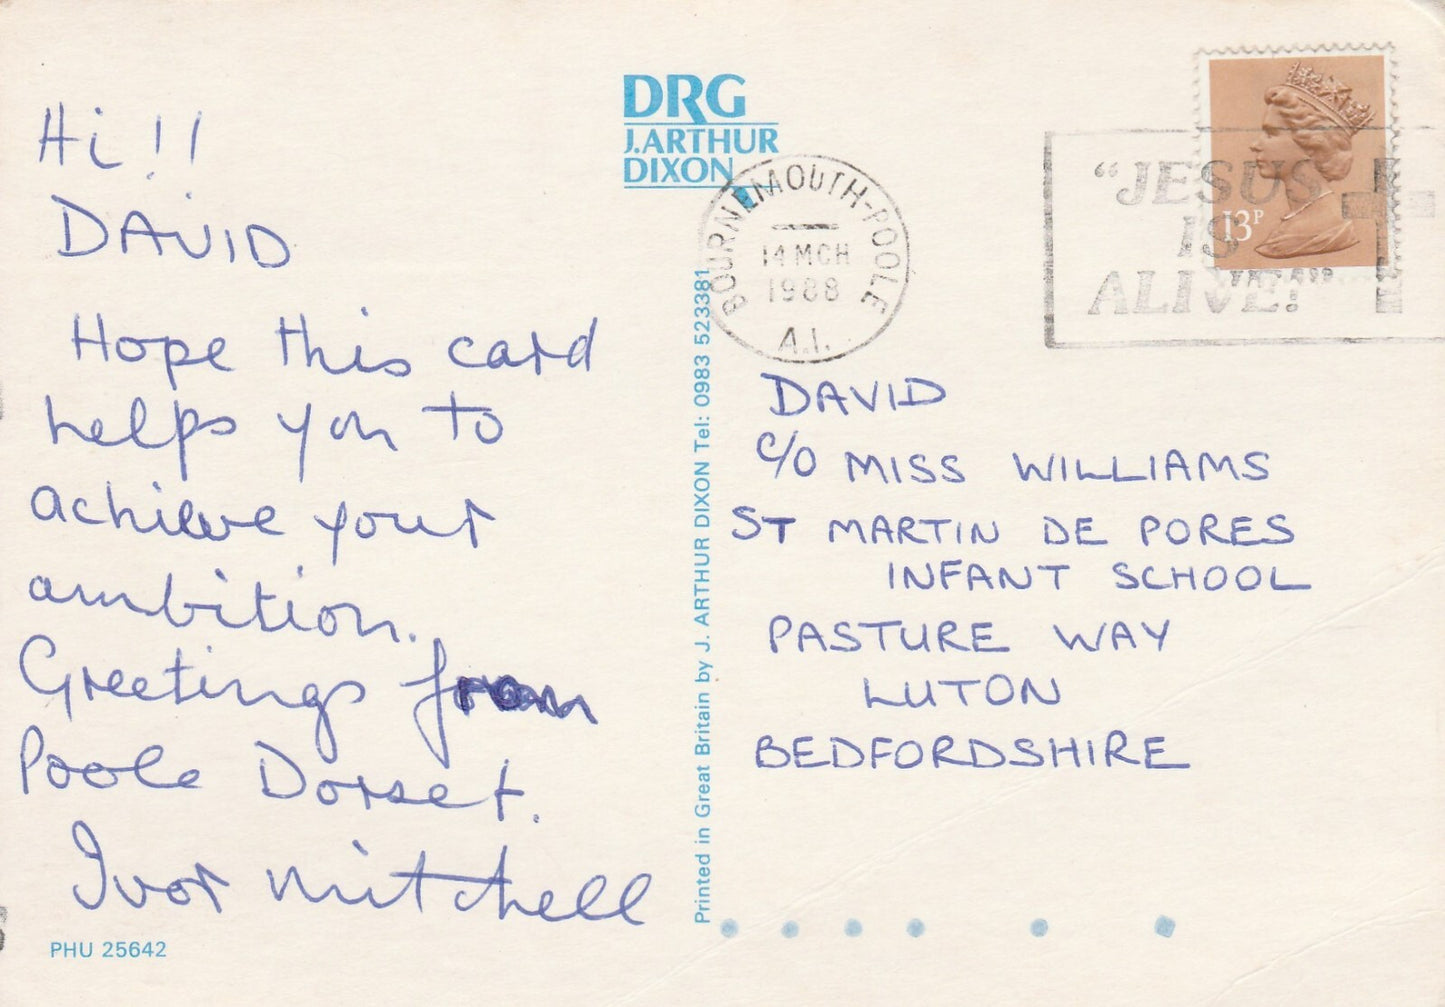 Hi!!
DAVID
Hope this card
helps you to
achieve your
ambition.
Greetings from
Poole Dorset.
Ivor Mitchell
PHU 25642
DRG
J.ARTHUR
DIXON
Printed in Great Britain by J. ARTHUR DIXON Tel: 0983 523381
BOURNEMOUTH-POOLE
14 MCH
1988
A.I.
13P
"JESUS
IS
ALIVE!"
DAVID
C/O MISS WILLIAMS
ST MARTIN DE PORES
INFANT SCHOOL
PASTURE WAY
LUTON
BEDFORDSHIRE